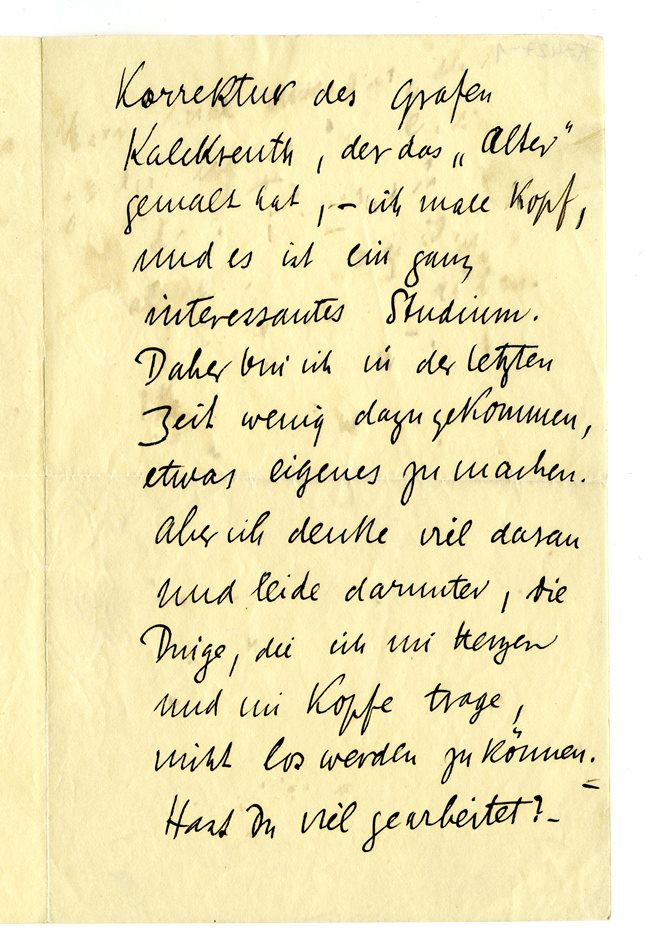 Korrektur des Grafen
Kalckreuth, der das „Alter"
gemalt hat, – ich male Kopf,
und es ist ein ganz
interessantes Studium.
Daher bin ich in der letzten
Zeit wenig dazu gekommen,
etwas eigenes zu machen.
Aber ich denke viel daran
und leide darunter, die
Dinge, die ich im Herzen
und im Kopfe trage,
nicht los werden zu können. –
Hast Du viel gearbeitet? –